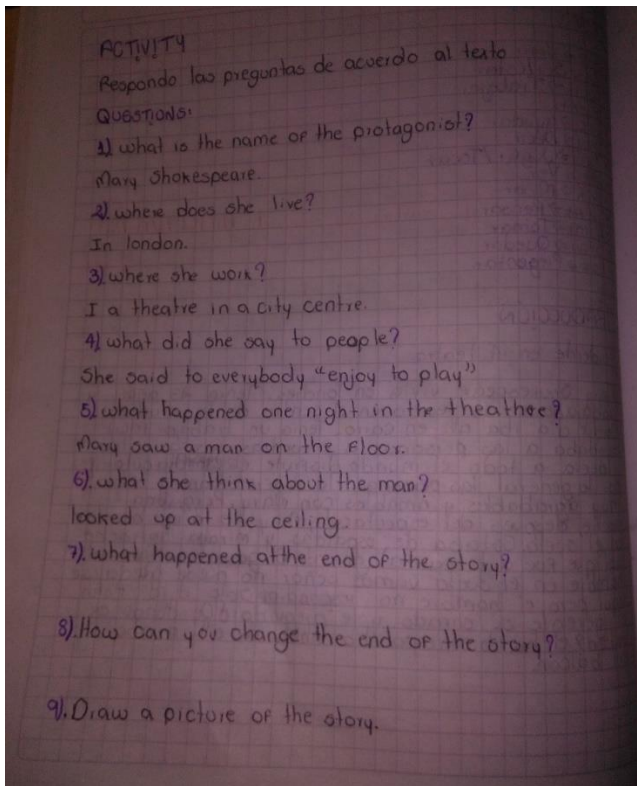 ACTIVITY
Respondo las preguntas de acuerdo al texto
QUESTIONS:
1) what is the name of the protagonist?
Mary Shakespeare.
2). where does she live?
In london.
3) where she work?
I a theatre in a city centre.
4) what did she say to people?
She said to everybody "enjoy to play"
5) what happened one night in the theathee?
Mary saw a man on the floor.
6). what she think about the man?
looked up at the ceiling.
7). what happened at the end of the story?
8). How can you change the end of the story?
9). Draw a picture of the story.